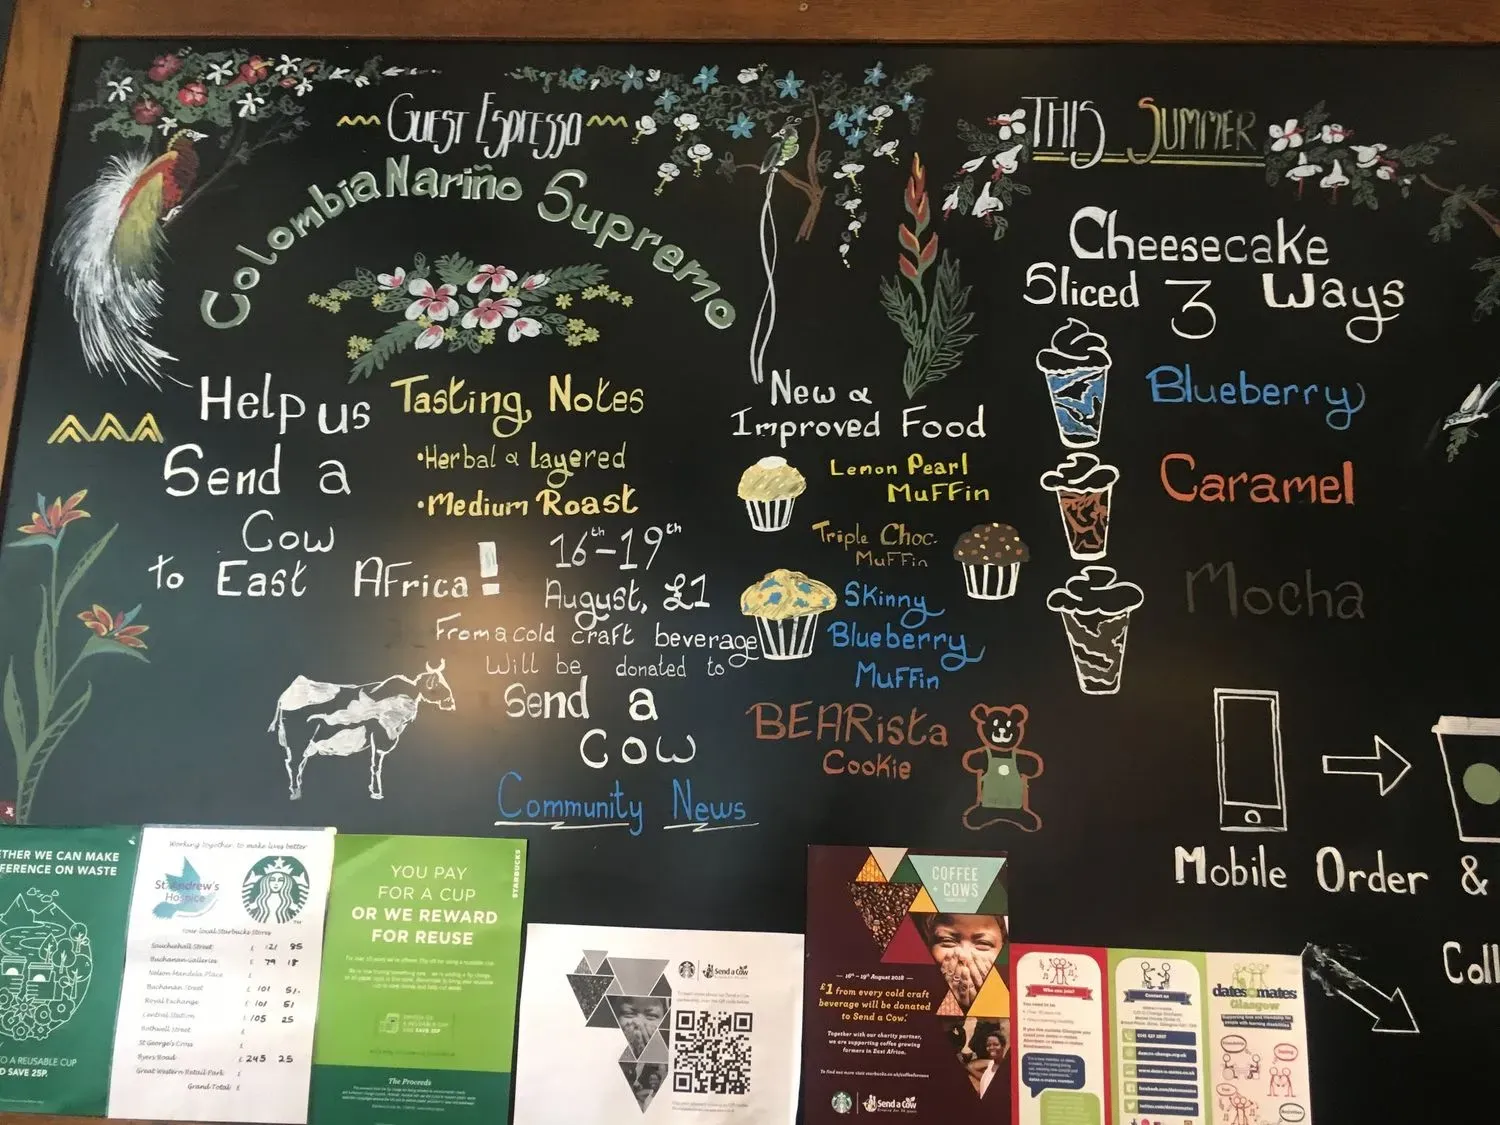 Guest Espresso
Colombia Nariño Supremo
Help us
Send a
Cow
to East Africa!
Tasting Notes
•Herbal & Layered
•Medium Roast
16th-19th
August, £1
From a cold craft beverage
Will be donated to
Send a
Cow
Community News
New &
Improved Food
Lemon Pearl
Muffin
Triple Choc.
Muffin
Skinny
Blueberry
Muffin
BEARista
Cookie
THIS SUMMER
Cheesecake
Sliced 3 Ways
Blueberry
Caramel
Mocha
Mobile Order &
Coll
ETHER WE CAN MAKE
FERENCE ON WASTE
TO A REUSABLE CUP
ND SAVE 25P.
Working together, to make lives better
St Andrew's
Hospice
Your local Starbucks Stores
Sauchiehall Street £ 121 85
Buchanan Galleries £ 79 18
Nelson Mandela Place £
Buchanan Street £ 101 51.
Royal Exchange £ 101 51
Central Station £ 105 25
Bothwell Street £
St George's Cross £
Byers Road £ 245 25
Great Western Retail Park £
Grand Total £
STARBUCKS
YOU PAY
FOR A CUP
OR WE REWARD
FOR REUSE
The Proceeds
Send a Cow
COFFEE
+ COWS
16th - 19th August 2018
£1 from every cold craft
beverage will be donated
to Send a Cow.
Together with our charity partner,
we are supporting coffee growing
farmers in East Africa.
To find out more visit starbucks.co.uk/coffeecows
Send a Cow
Who can join?
Contact us
dates-n-mates
Glasgow
Supporting love and friendship for
people with learning disabilities
Friendship
Dating
Activities